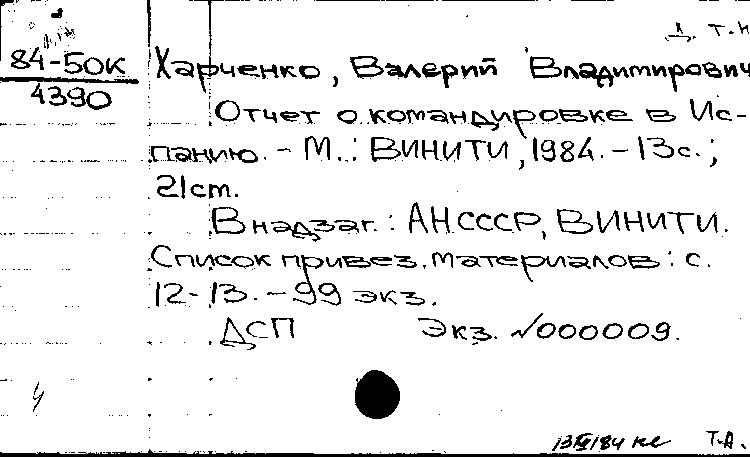 д. т. н
84-50К
4390
Харченко, Валерий Владимирович
Отчет о командировке в Ис-
панию. - М.: ВИНИТИ, 1984. - 13с.;
21ст.
В надзаг.: АН СССР, ВИНИТИ.
Список привез. материалов: с.
12-13. - 99 экз.
ДСП Экз. №000009.
Т.А.